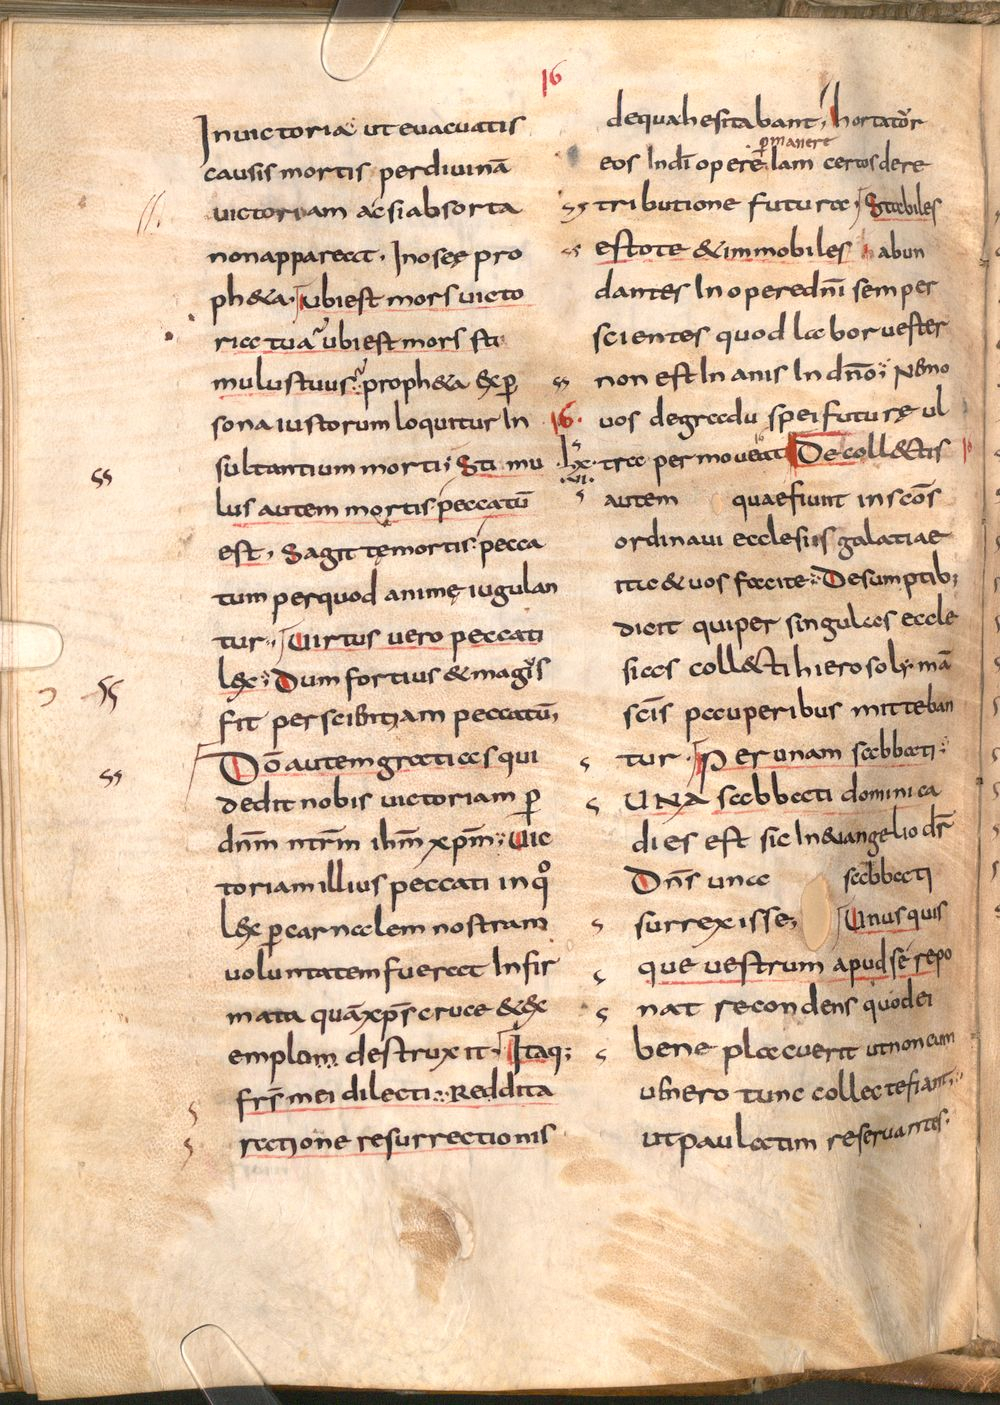 16
In uictoria ut euacuatis
causis mortis per diuinā
uictoriam ac si absorta
non appareat. In osee pro
ph&a. Ubi est mors uicto
ria tua ubi est mors sti
mulus tuus. proph&a ex p̱
sona iustorum loquitur In
sultantium morti; Sti mu
lus autem mortis peccatū
est, Sagitte mortis pecca
tum per quod anime iugulan
tur, Uirtus uero peccati
lex; Dum fortius & magis
fit per scientiam peccatū,
Dō autem gratias qui
dedit nobis uictoriam p̱
dnm̄ ntrm̄ ihm̄ xpm̄; Uic
toriam illius peccati in qͦ
lex p̱ carnalem nostram
uoluntatem fuerat Infir
mata quā xp̄s cruce & ex
emplom destruxit. Itaq;
frs̄ mei dilecti. Reddita
ratione resurrectionis
de qua hesitabant, hortator
p̱manere
eos In dī opere Iam certos de re
tributione futura, Stabiles
estote & immobiles abun
dantes In opere dnī semper
scientes quod labor uester
non est In anis In dnō; Nemo
16. uos de gradu spei future ul
tra per moueat De coll&tis
autem quae fiunt in scōs
ordinaui ecclesiis galatiae
ita & uos facite; De sumptib;
dicit qui per singulas eccle
sias coll&ti hierosolymā
scīs pauperibus mitteban
tur. Per unam sabbati;
UNA sabbati dominica
dies est sic In euangelio dr̄
Dn̄s una sabbati
surrexisse, Unus quis
que uestrum apud se repo
nat recondens quod ei
bene placuerit ut non cum
uenero tunc collecte fiant.
ut paulatim reseruantes.